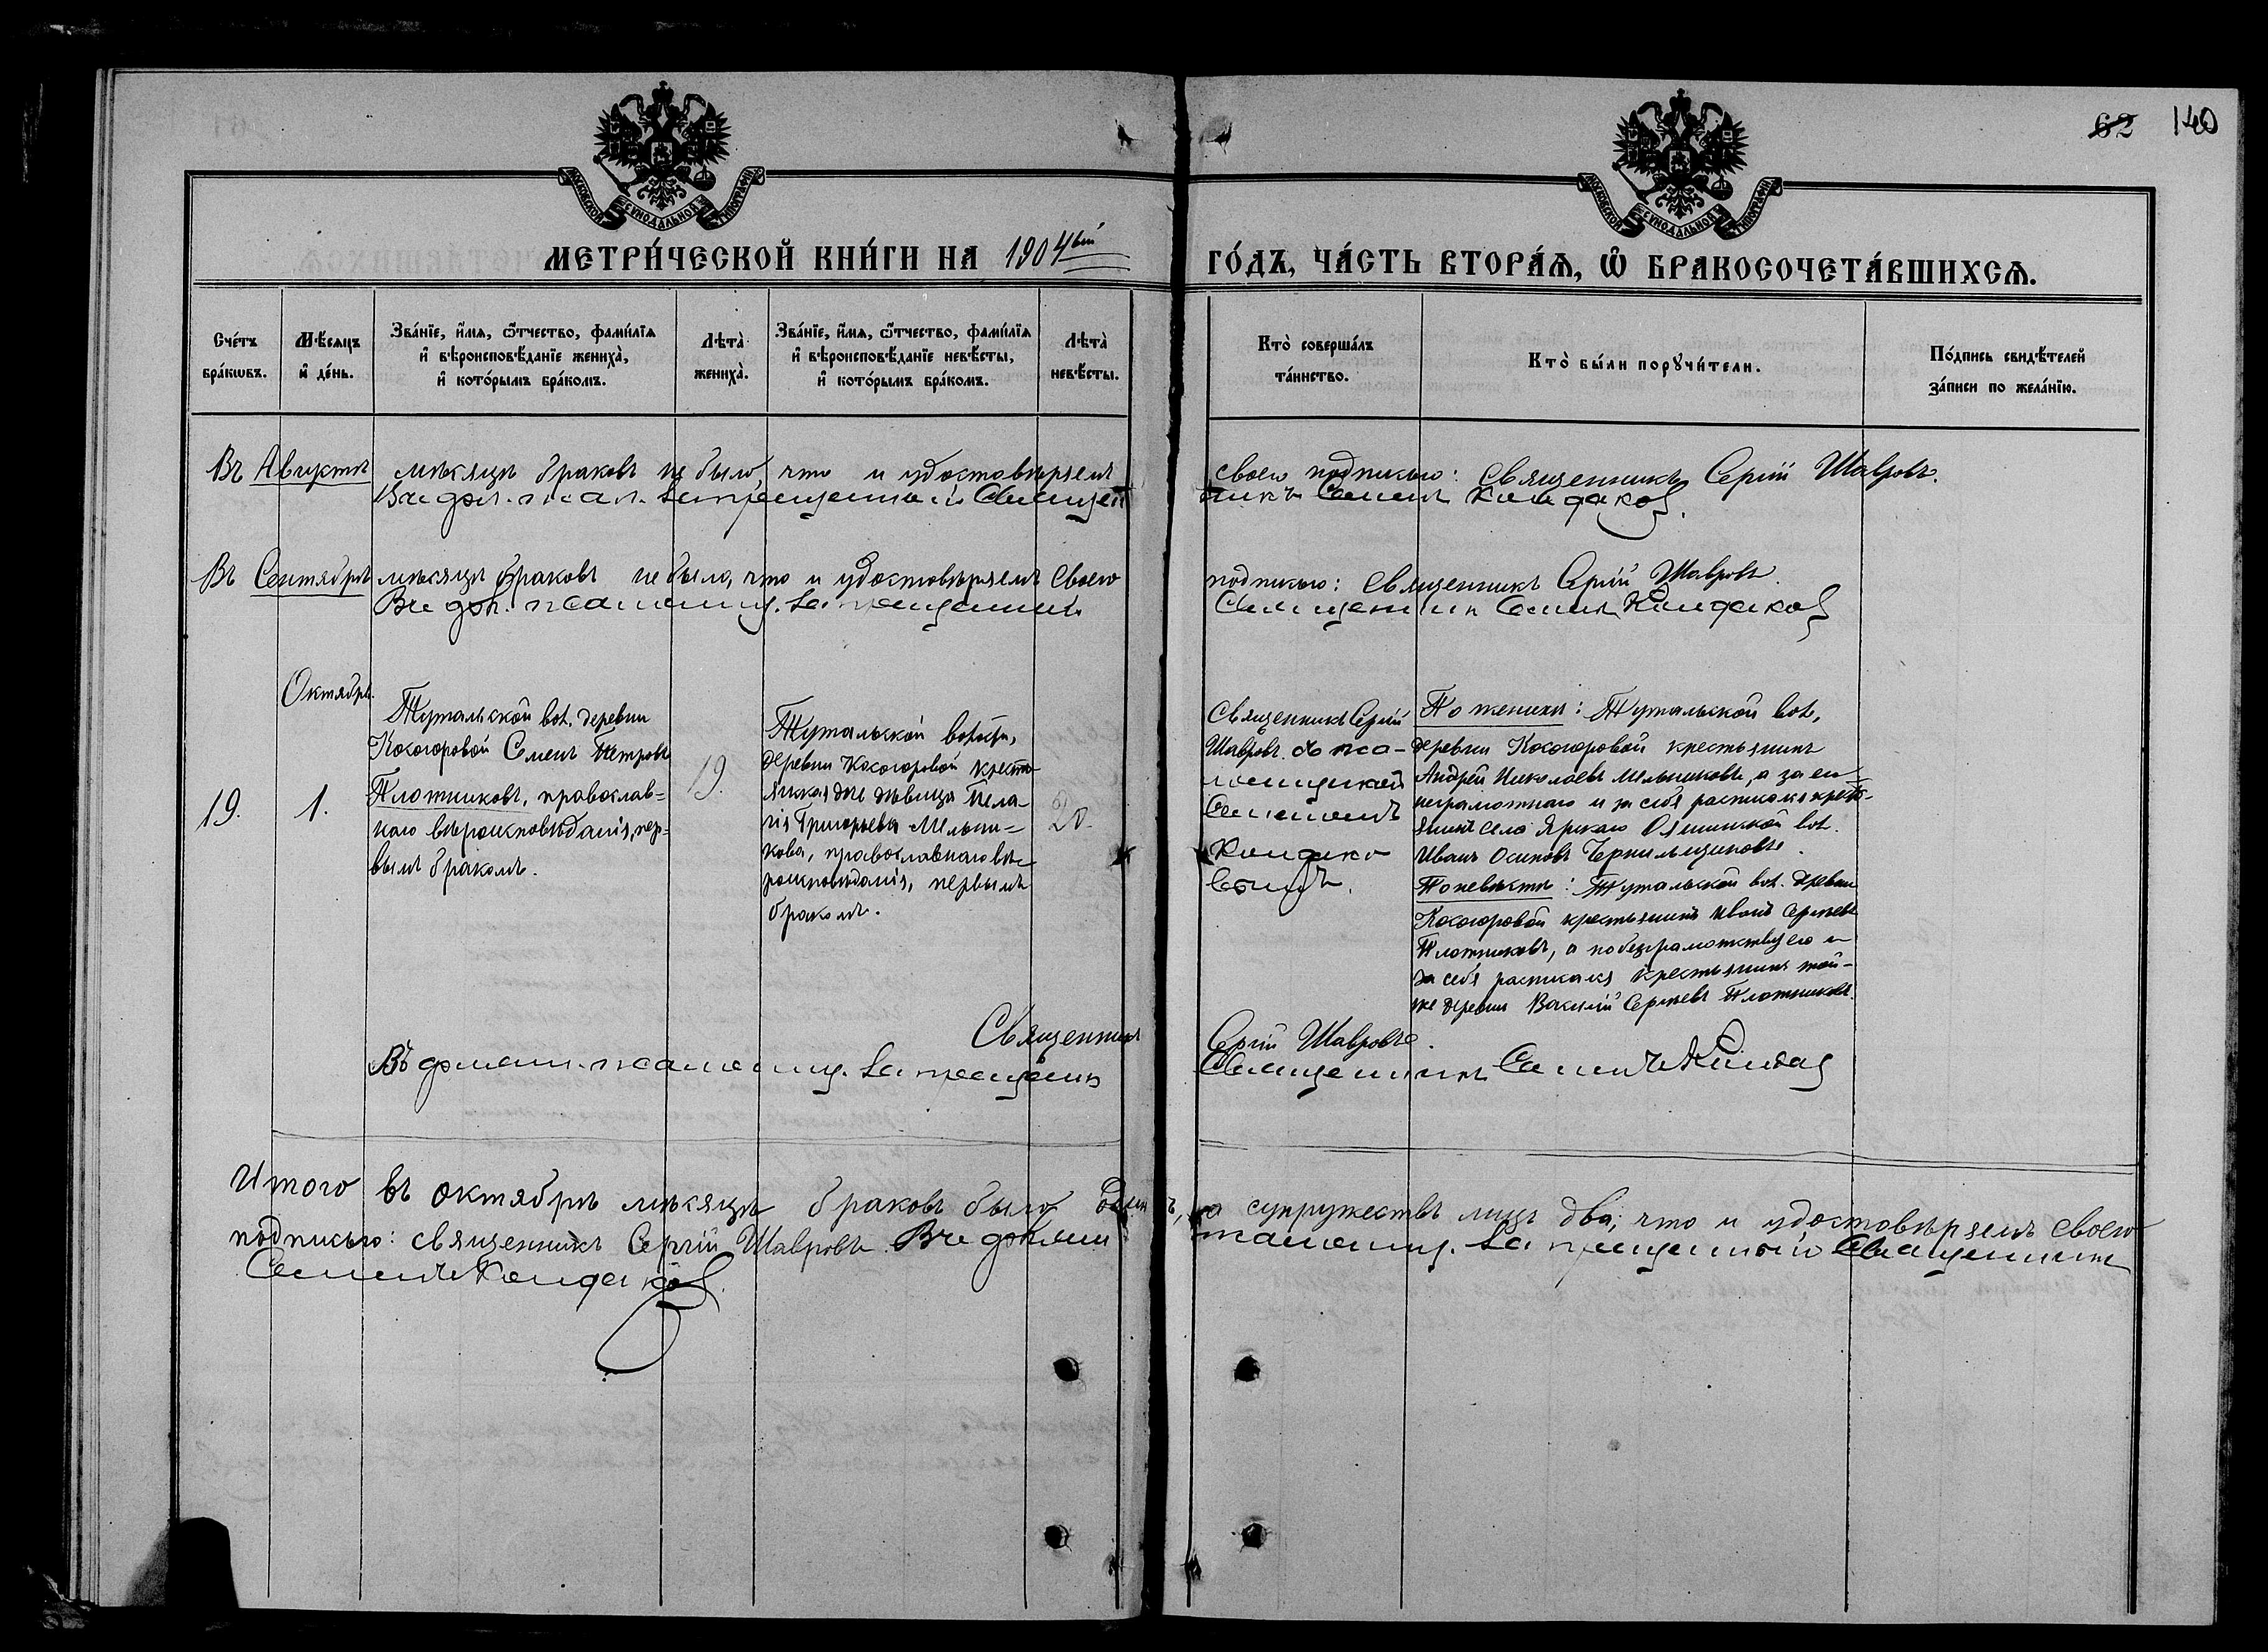 62 140
МОСКОВСКОЙ СѴНОДАЛЬНОЙ ТИПОГРАФІИ
МОСКОВСКОЙ СѴНОДАЛЬНОЙ ТИПОГРАФІИ
МЕТРИ́ЧЕСКОЙ КНИ́ГИ НА 1904ый ГО́ДЪ, ЧА́СТЬ ВТОРА́Ѧ, Ѽ БРАКОСОЧЕТА́ВШИХСѦ.
Сче́тъ
бра́кѡвъ.
Мѣ́сѧцъ
и҆ де́нь.
Зва́нїе, и҆́мѧ, ѻ҆́тчество, фами́лїѧ
и҆ вѣроисповѣ́данїе жениха̀,
и҆ кото́рымъ бра́комъ.
Лѣта̀
жениха̀.
Зва́нїе, и҆́мѧ, ѻ҆́тчество, фами́лїѧ
и҆ вѣроисповѣ́данїе невѣ́сты,
и҆ кото́рымъ бра́комъ.
Лѣта̀
невѣ́сты.
Кто̀ соверша́лъ
та́инство.
Кто̀ бы́ли порꙋчи́тели.
По́дпись свидѣ́телей
за́писи по жела́нїю.
Въ Августѣ мѣсяцѣ браковъ не было, что и удостовѣряемъ своею подписью: Священникъ Сергій Шавровъ.
Священникъ Симеонъ Кондаков.
Въ Сентябрѣ мѣсяцѣ браковъ не было, что и удостовѣряемъ своею подписью: Священникъ Сергій Шавровъ.
Священник Кондаков
Октябрь.
19.
1.
Тутальской вол. деревни
Косогоровой Семенъ Петровъ
Плотниковъ, православ-
наго вѣроисповѣданія, пер-
вымъ бракомъ.
19.
Тутальской волости,
деревни Косогоровой кресть
янская дѣвица Пела-
гія Григорьева Мельни-
кова, православнаго вѣ-
роисповѣданія, первымъ
бракомъ.
20.
Священникъ Сергій
Шавровъ съ пса-
ломщикомъ
Кондако
вымъ.
По женихѣ: Тутальской вол.
деревни Косогоровой крестьянинъ
Андрей Николаевъ Мельниковъ, а за его
неграмотнаго и за себя расписался кресть-
янинъ села Ярскаго Ояшинской вол.
Иванъ Осиповъ Чернильщиковъ.
По невѣстѣ: Тутальской вол. деревни
Косогоровой крестьянинъ Иванъ Сергѣевъ
Плотниковъ, а по безграмотству его и
за себя расписался крестьянинъ той-
же деревни Василій Сергѣевъ Плотниковъ.
Священникъ Сергій Шавровъ.
Священникъ
Итого въ октябрѣ мѣсяцѣ браковъ было одинъ, а супружествъ лицъ два; что и удостовѣряемъ своею
подписью: священникъ Сергій Шавровъ. Священникъ
Кондаков.